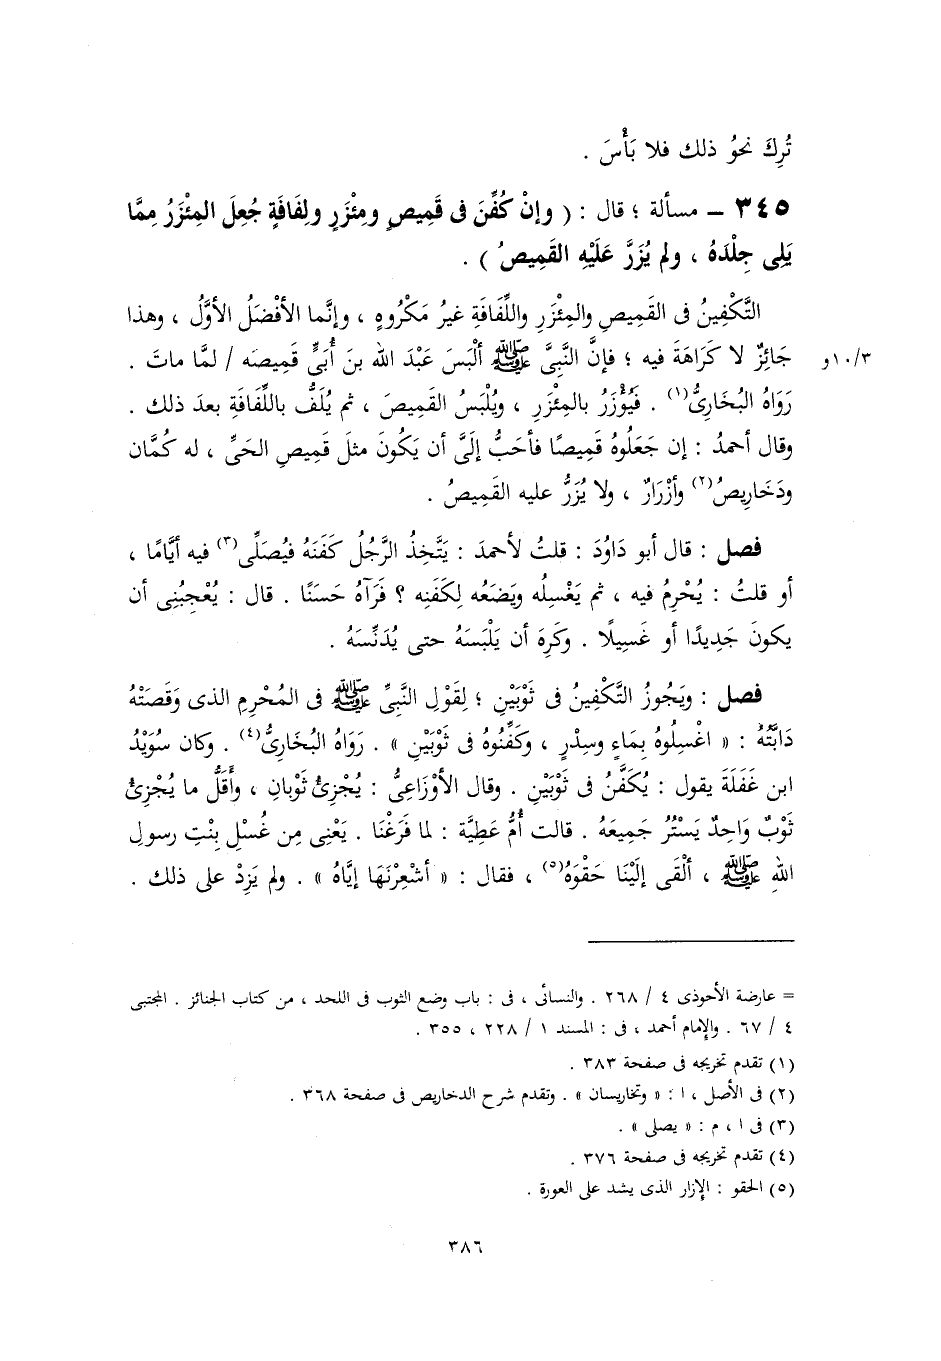 تُرِكَ نحوُ ذلك فلا بَأْسَ .
٣٤٥ – مسألة ؛ قال : ( وإنْ كُفِّنَ فى قَمِيصٍ ومِئْزَرٍ ولِفَافَةٍ جُعِلَ المِئْزَرُ مِمَّا
يَلِى جِلْدَهُ ، ولم يُزَرَّ عَلَيْهِ القَمِيصُ ) .
التَّكْفِينُ فى القَمِيصِ والمِئْزَرِ واللِّفَافَةِ غيرُ مَكْرُوهٍ ، وإنَّما الأفْضَلُ الأوَّلُ ، وهذا
جَائِزٌ لا كَرَاهَةَ فيه ؛ فإنَّ النَّبِىَّ ﷺ ألْبَسَ عَبْدَ الله بنَ أُبَىٍّ قَمِيصَه / لمَّا ماتَ . ١٠/٣و
رَوَاهُ البُخَارِىُّ(١) . فَيُؤْزَرُ بالمِئْزَرِ ، ويُلْبَسُ القَمِيصَ ، ثم يُلَفُّ باللِّفَافَةِ بعدَ ذلك .
وقال أحمدُ : إن جَعَلُوهُ قَمِيصًا فأحَبُّ إلَىَّ أن يَكُونَ مثلَ قَمِيصِ الحَىِّ ، له كُمَّان
ودَخَارِيصُ(٢) وأزْرَارٌ ، ولا يُزَرُّ عليه القَمِيصُ .
فصل : قال أبو دَاوُدَ : قلتُ لأحمدَ : يَتَّخِذُ الرَّجُلُ كَفَنَهُ فيُصَلِّى(٣) فيه أيَّامًا ،
أو قلتُ : يُحْرِمُ فيه ، ثم يَغْسِلُه ويَضَعُه لِكَفَنِه ؟ فَرَآهُ حَسَنًا . قال : يُعْجِبُنِى أن
يكونَ جَدِيدًا أو غَسِيلًا . وكَرِهَ أن يَلْبَسَهُ حتى يُدَنِّسَهُ .
فصل : ويَجُوزُ التَّكْفِينُ فى ثَوْبَيْنِ ؛ لِقَوْلِ النَّبِىِّ ﷺ فى المُحْرِمِ الذى وَقَصَتْهُ
دَابَّتُهُ : « اغْسِلُوهُ بِمَاءٍ وسِدْرٍ ، وكَفِّنُوهُ فى ثَوْبَيْنِ » . رَوَاهُ البُخَارِىُّ(٤) . وكان سُوَيْدُ
ابن غَفَلَةَ يقول : يُكَفَّنُ فى ثَوْبَيْنِ . وقال الأوْزَاعِىُّ : يُجْزِئُ ثَوْبانِ ، وأقَلُّ ما يُجْزِئُ
ثَوْبٌ وَاحِدٌ يَسْتُرُ جَمِيعَهُ . قالت أُمُّ عَطِيَّةَ : لما فَرَغْنَا . يَعْنِى مِن غُسْلِ بِنْتِ رسولِ
اللهِ ﷺ ، ألْقَى إلَيْنَا حَقْوَهُ(٥) ، فقال : « أشْعِرْنَهَا إيَّاهُ » . ولم يَزِدْ على ذلك .
= عارضة الأحوذى ٤ / ٢٦٨ . والنسائى ، فى : باب وضع الثوب فى اللحد ، من كتاب الجنائز . المجتبى
٤ / ٦٧ . والإمام أحمد ، فى : المسند ١ / ٢٢٨ ، ٣٥٥ .
(١) تقدم تخريجه فى صفحة ٣٨٣ .
(٢) فى الأصل ، ا : « وتخاريسان » . وتقدم شرح الدخاريص فى صفحة ٣٦٨ .
(٣) فى ا ، م : « يصلى » .
(٤) تقدم تخريجه فى صفحة ٣٧٦ .
(٥) الحقو : الإزار الذى يشد على العورة .
٣٨٦